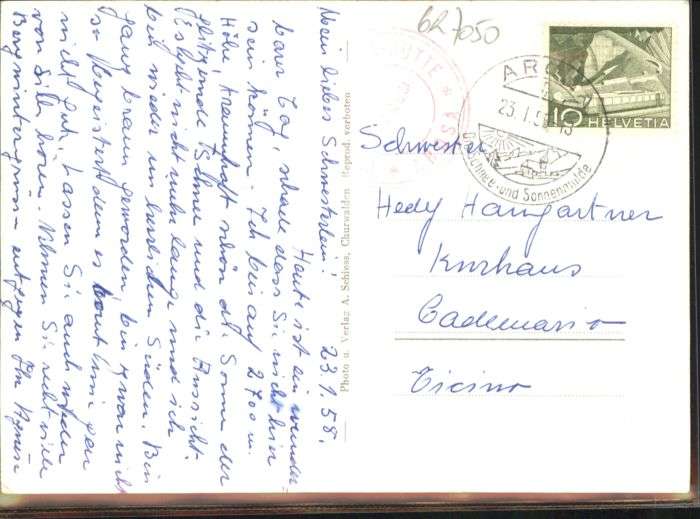 6R 7050
Mein liebes Schwesterlein! 23.1.58.
Heute ist ein wunder=
barer Tag, schade dass Sie nicht hier
sein können. Ich bin auf 2700 m
Höhe, traumhaft schön ist die Sonne der
glitzernde Schnee und die Aussicht.
Es geht nicht mehr lange und ich
bin wieder im herrlichen Süden. Bin
ganz braun geworden bin zwar nicht
so begeistert denn es kommt mir gar
nicht gut, Lassen Sie auch wieder
von sich hören. Nehmen Sie recht viele
entgegen Ihr
Photo u. Verlag A. Schloss, Churwalden Reprod. verboten
ARO
23.I.5
Schnee- und Sonnenmulde
10 HELVETIA
Schwester
Hedy Hamgartner
Kurhaus
Cademario
Ticino